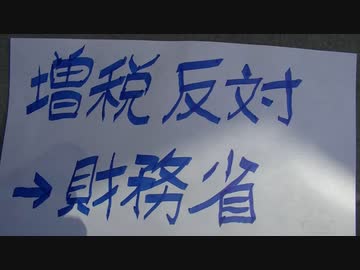 増税反対
→財務省